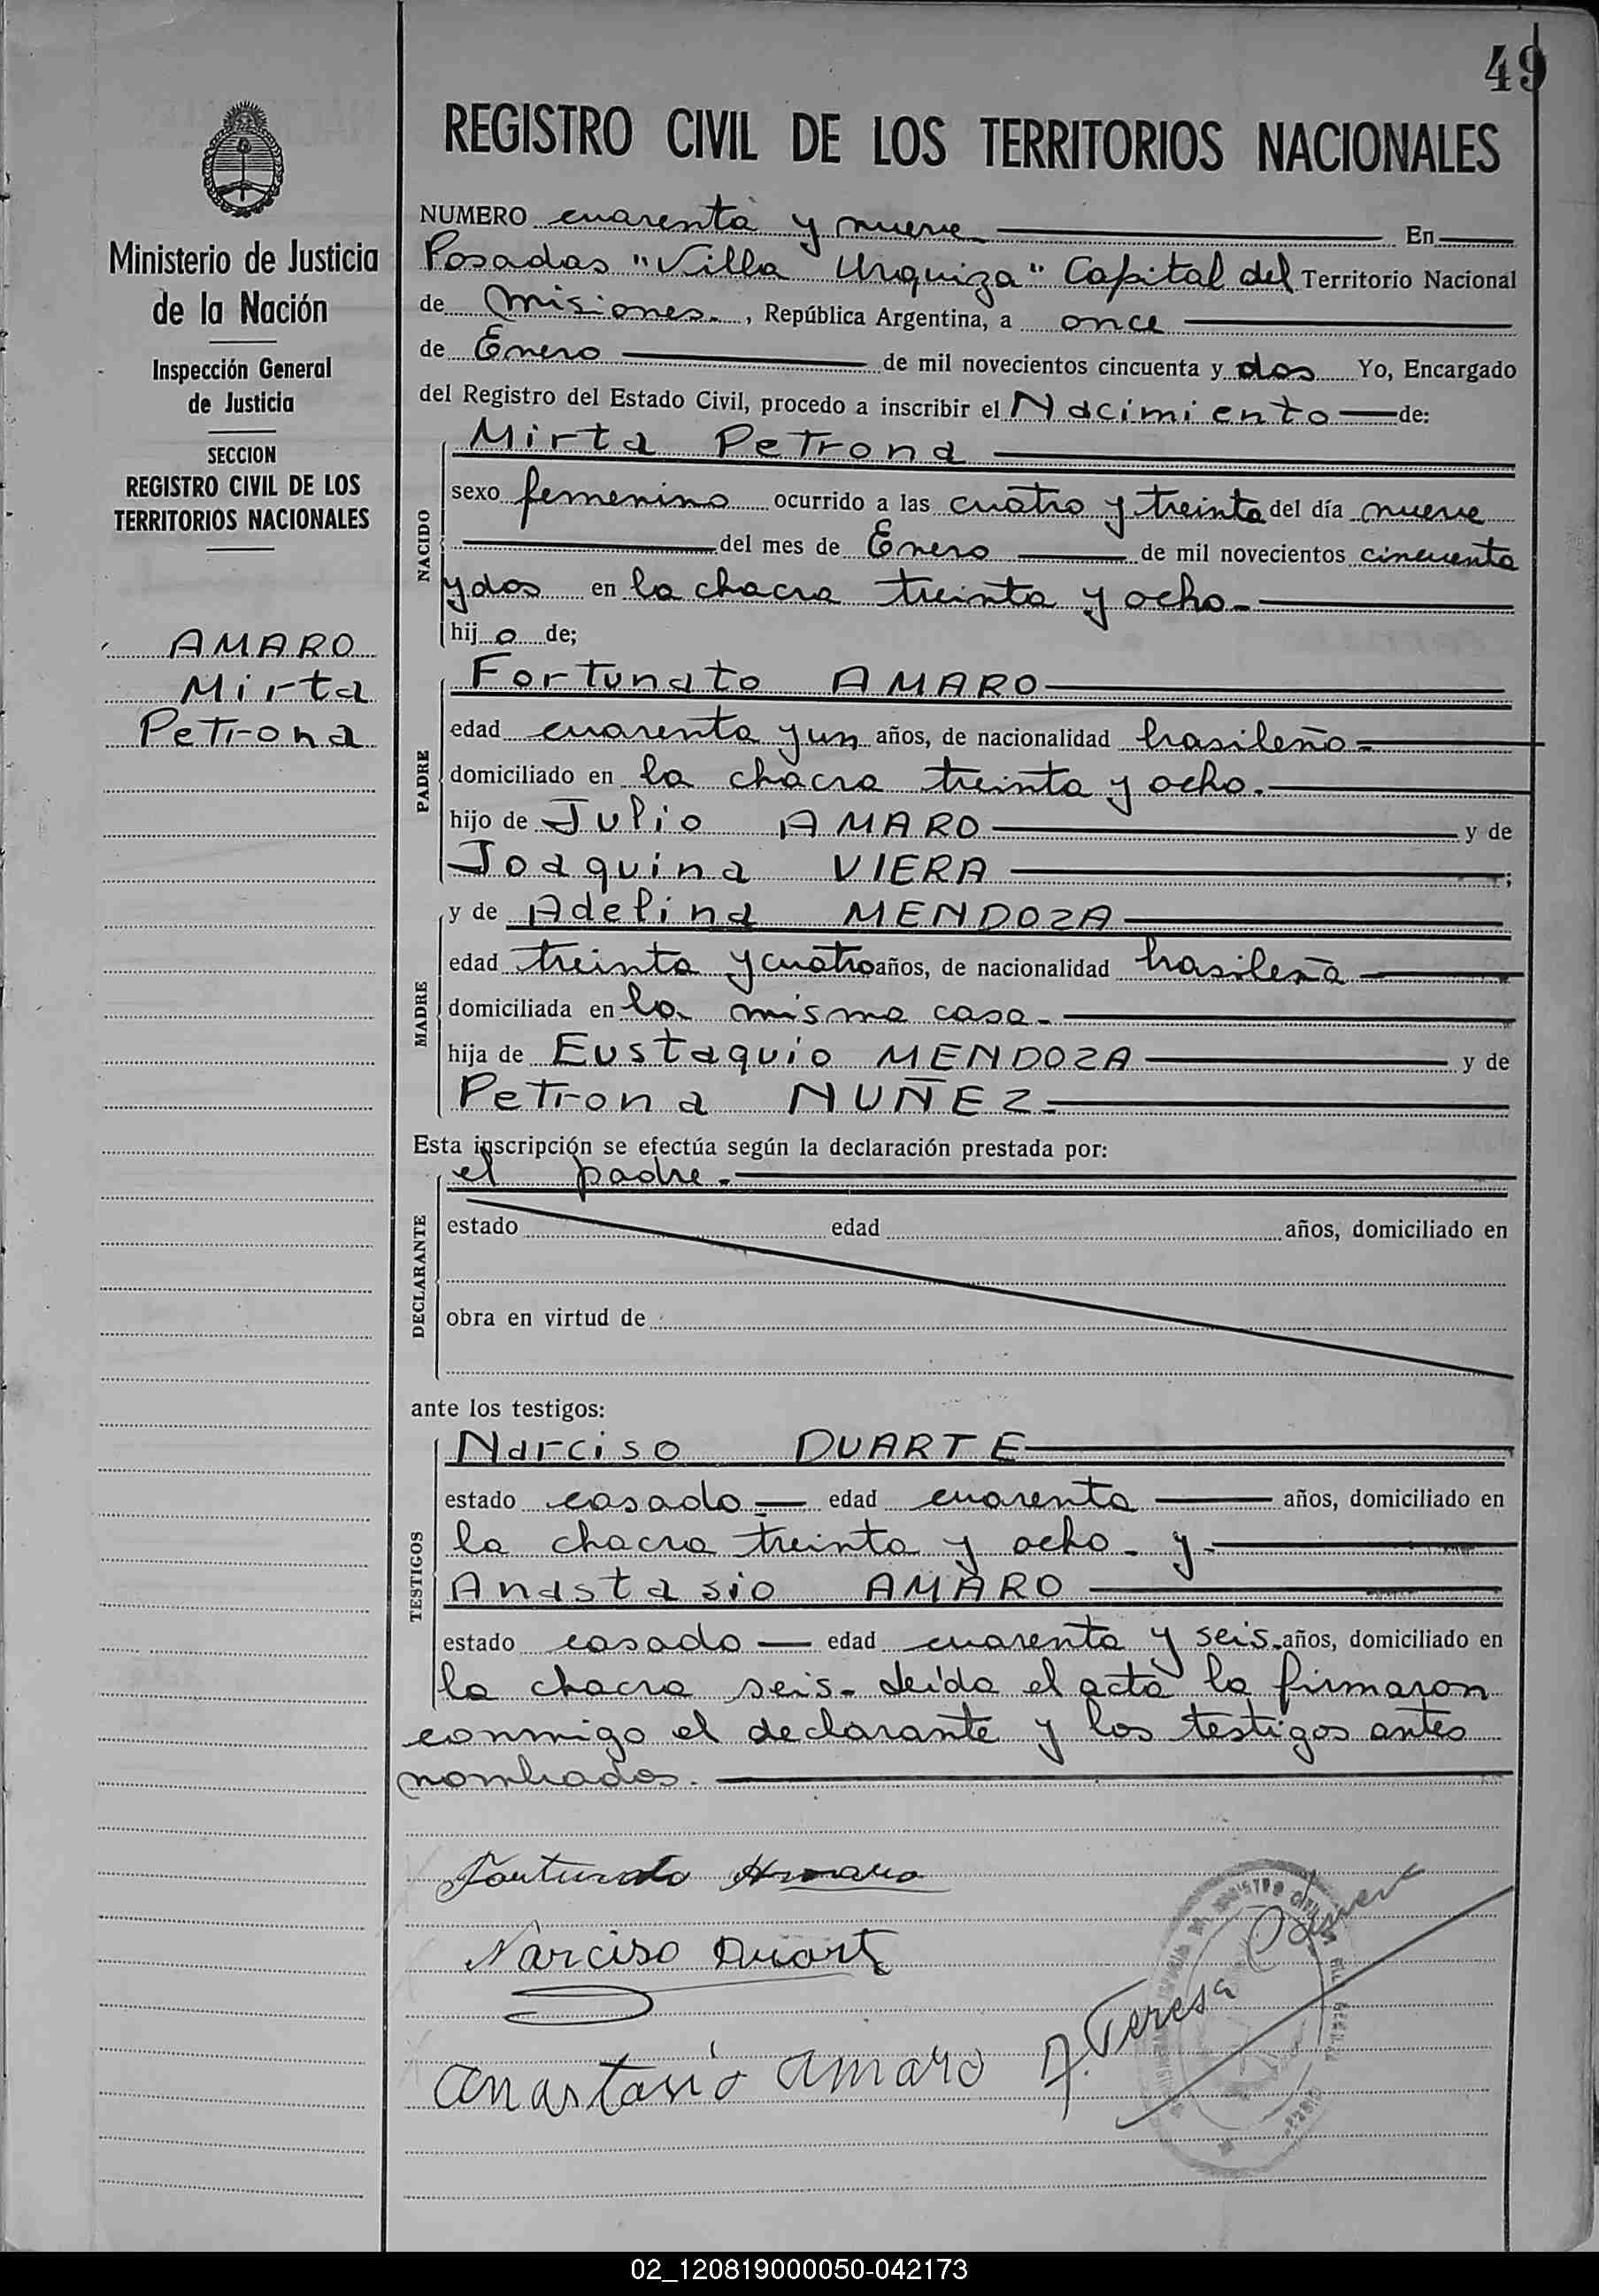 49
REGISTRO CIVIL DE LOS TERRITORIOS NACIONALES
Ministerio de Justicia
de la Nación
Inspección General
de Justicia
SECCION
REGISTRO CIVIL DE LOS
TERRITORIOS NACIONALES
AMARO
Mirta
Petrona
NUMERO cuarenta y nueve En
Posadas "Villa Urquiza" Capital del Territorio Nacional
de Misiones. , República Argentina, a once
de Enero de mil novecientos cincuenta y dos Yo, Encargado
del Registro del Estado Civil, procedo a inscribir el Nacimiento de:
NACIDO
Mirta Petrona
sexo femenino ocurrido a las cuatro y treinta del día nueve
del mes de Enero de mil novecientos cincuenta
y dos en la chacra treinta y ocho.
hij o de;
PADRE
Fortunato AMARO
edad cuarenta y un años, de nacionalidad brasileño.
domiciliado en la chacra treinta y ocho.
hijo de Julio AMARO y de
Joaquina VIERA ;
MADRE
y de Adelina MENDOZA
edad treinta y cuatro años, de nacionalidad brasileña
domiciliada en la misma casa.
hija de Eustaquio MENDOZA y de
Petrona NUÑEZ.
Esta inscripción se efectúa según la declaración prestada por:
DECLARANTE
el padre.
estado edad años, domiciliado en
obra en virtud de
ante los testigos:
TESTIGOS
Narciso DUARTE
estado casado edad cuarenta años, domiciliado en
la chacra treinta y ocho. y
Anastasio AMARO
estado casado edad cuarenta y seis. años, domiciliado en
la chacra seis. Leída el acta la firmaron
conmigo el declarante y los testigos antes
nombrados.
Fortunato Amaro
Narciso Duart
Anastasio amaro
A. Teresa
02_120819000050-042173